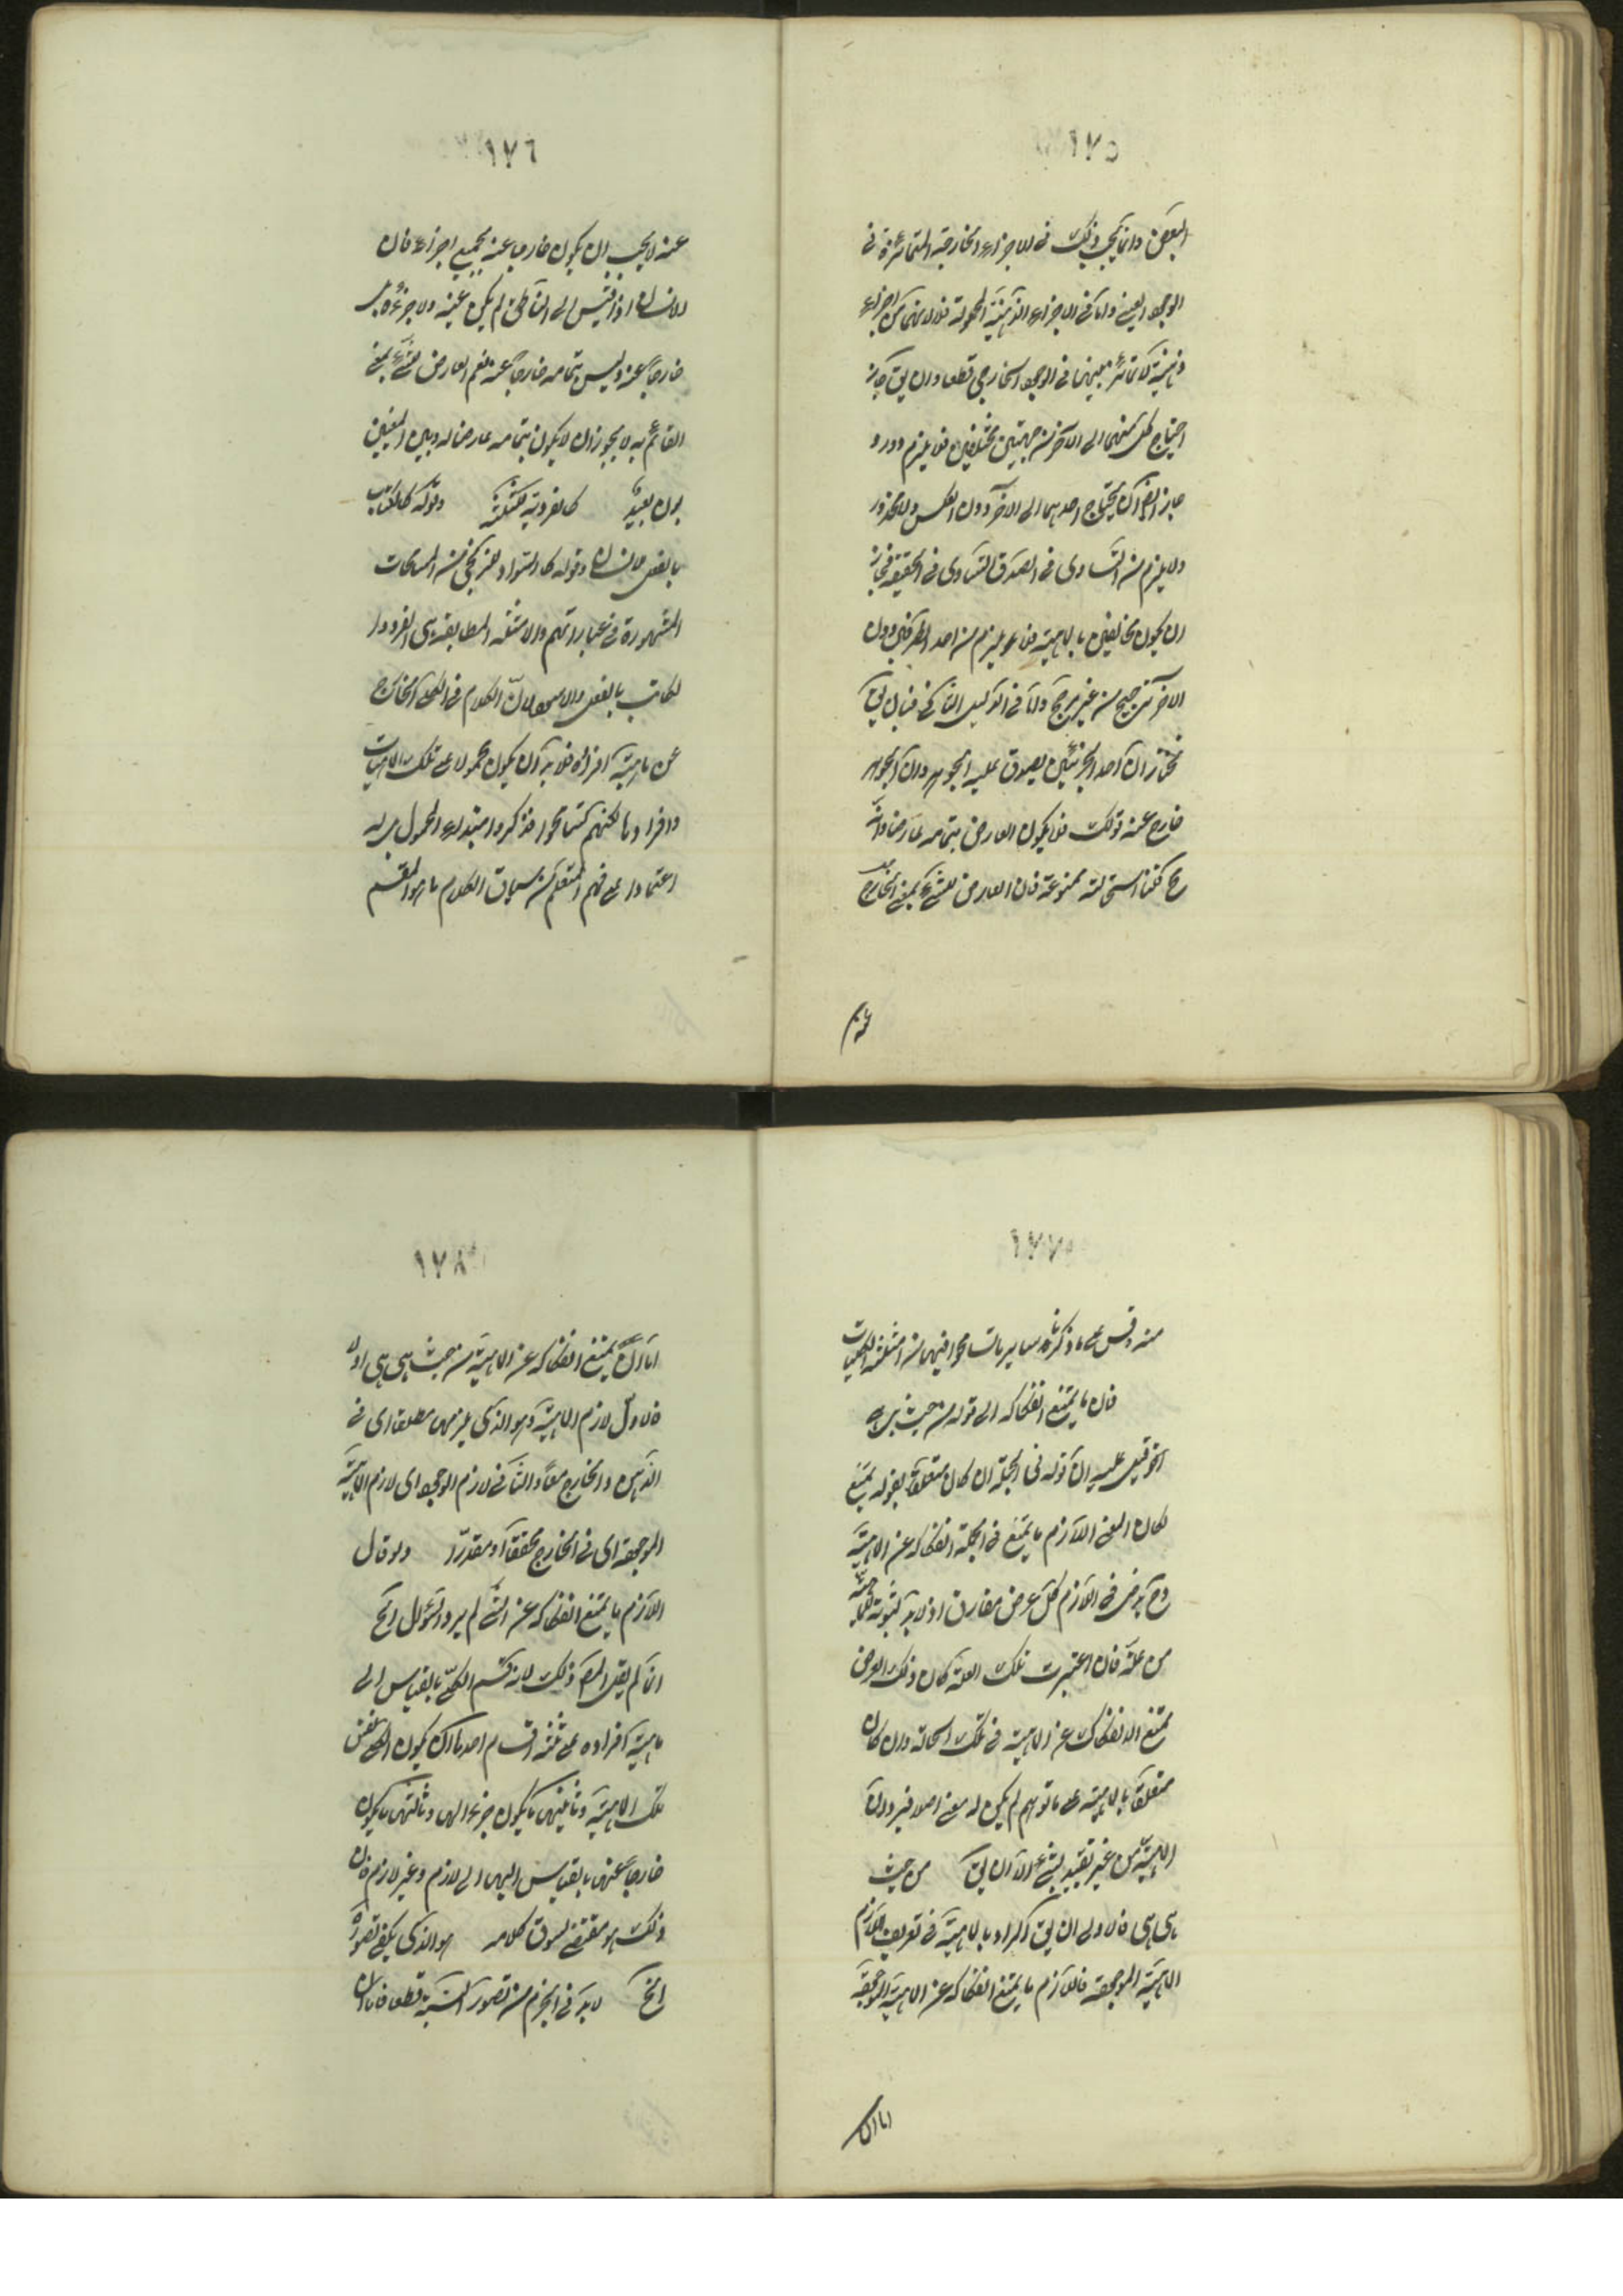 ١٧٥
البعض وانما يجب ذلك في الاجزاء الخارجية المتمائزة في
الوجود العيني واما في الاجزاء الذهنية المحمولة فلا لانها اجزاء
ذهنية لا تمائز بينها في الوجود الخارجي قطعا وان يق جاز
احتياج كل منهما الى الآخر من جهتين مختلفتين فلا يلزم دور و
جاز ايضا ان يحتاج احدهما الى الآخر دون العكس ولا محذور
ولا يلزم من التساوى في الصدق التساوى في الحقيقة فجاز
ان يكون مخالفين بالماهية فلا يلزم من احد الطرفين دون
الآخر ترجيح من غير مرجح واما في الدليل الثاني فبان يق
نختار ان احد الجزئين يصدق عليه الجوهر وان الجوهر
خارج عنه قولك فلا يكون العارض بتمامه عارضا وانه
مح قلنا استحالته ممنوعة فان العارض للشئ بمعنى الخارج
عنه
١٧٦
عنه لا يجب ان يكون خارجا عنه بجميع اجزاءه فان
الانسان اذا قيس الى الناطق لم يكن عينه ولا جزءه بل
خارجا عنه وليس بتمامه خارجا عنه نعم العارض للشئ بمعنى
القائم به لا يجوز ان لا يكون بتمامه عارضا له وبين المعنيين
بون بعيد كالفردية للثلثة وقوله كالكاتب
بالفعل للانسان وقوله كالسواد للزنجي من المسامحات
المشهورة في عباراتهم والامثلة المطابقة هي الفرد و
الكاتب بالفعل والاسود لان الكلام في الكلي الخارج
عن ماهية افراده فلا بد ان يكون محمولا على تلك الماهيات
وافرادها لكنهم تسامحوا فذكروا مبتداء المحمول بدله
اعتمادا على فهم المتعلم من سياق الكلام ما هو المقسم
١٧٧
منه وقس على ما ذكرناه سائر ما تسامحوا فيها من امثلة الكليات
قال ما يمتنع انفكاكه الى قوله من حيث هي هي
آخ قيل عليه ان قوله في الجملة ان كان متعلقا بقوله يمتنع
لكان المعنى اللازم ما يمتنع في الجملة انفكاكه عن الماهية
وح يدخل في اللازم كل عرض مفارق اذ لا بد لثبوته للماهية
من علة فان اعتبرت تلك العلة كان ذلك العرض
ممتنع الانفكاك عن الماهية في تلك الحالة وان كان
متعلقا بالماهية على ما توهم لم يكن له معنى اصلا فيرد ان
الماهية من غير تقييد بشئ الا ان يق من حيث
هي هي فالاولى ان يق اراد بالماهية في تعريف اللازم
الماهية الموجودة فاللازم ما يمتنع انفكاكه عن الماهية الموجودة
اما ان
١٧٨
اما ان يمتنع انفكاكه عن الماهية من حيث هي هي اولا
فالاول لازم الماهية وهو الذى يلزمها مطلقا اى في
الذهن والخارج معا والثاني لازم الوجود اى لازم الماهية
الموجودة اى في الخارج محققا او مقدرا ولو قال
اللازم ما يمتنع انفكاكه عن الشئ لم يرد السؤال آخ
انما لم يقل المص ذلك لانه قسم الكلي بالقياس الى
ماهية افراده على ثلثة اقسام احدها ان يكون الكلي نفس
تلك الماهية وثانيها ما يكون جزءا لها وثالثها ما يكون
خارجا عنها بالقياس اليها الى لازم وغير لازم فان
ذلك هو مقتضى لسوق كلامه هو الذى يكفي تصوره
آخ لا بد في الجزم من تصور النسبة قطعا فاما ان